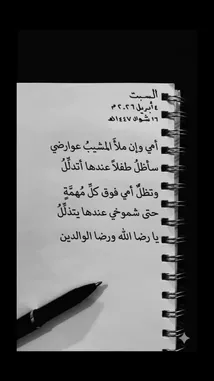 السبت
٤ أبريل ٢٠٢٦ م
١٦ شوال ١٤٤٧هـ
أمي وإن ملأَ المشيبُ عوارضي
سأظلُّ طفلاً عندها أتدلَّلُ
وتظلُّ أمي فوق كلِّ مُهمَّةٍ
حتى شموخي عندها يتذلَّلُ
يا رضا الله ورضا الوالدين